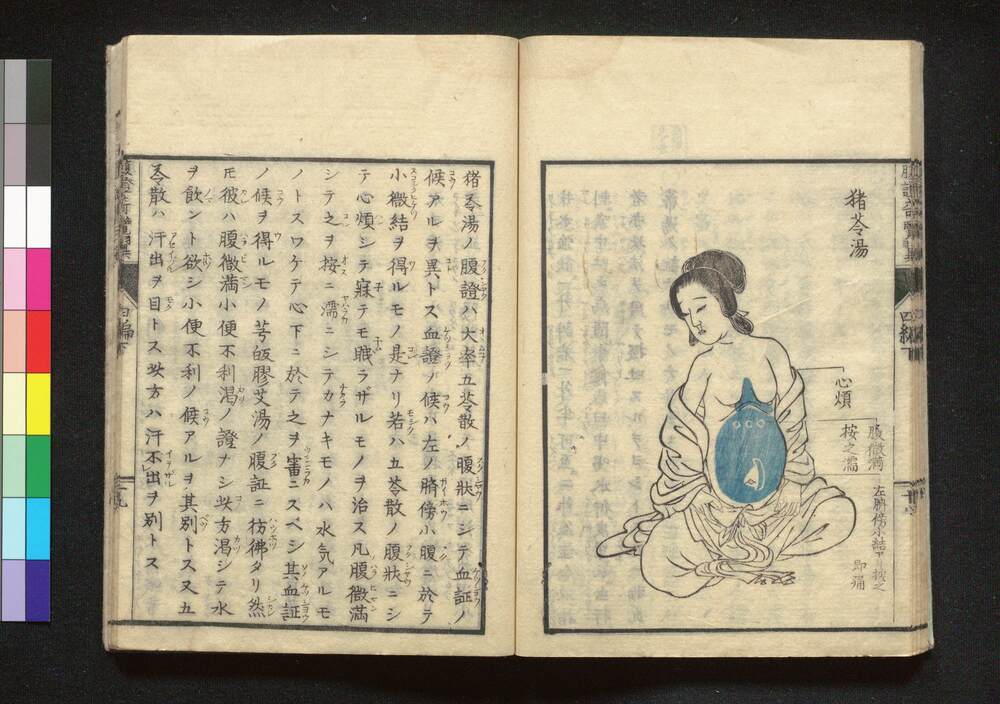 猪苓湯
心煩
腹微満
按之濡
左臍傍小結
按之
即痛
猪苓湯ノ腹證ハ大率五苓散ノ腹狀ニシテ血証ノ
候アルヲ異トス血證ノ候ハ左ノ臍傍小腹ニ於テ
小微結ヲ得ルモノ是ナリ若ハ五苓散ノ腹狀ニシ
テ心煩シテ寐テモ職ラザルモノヲ治ス凡腹微満
シテ之ヲ按ニ濡ニシテカナキモノハ水気アルモ
ノトスワケテ心下ニ於テ之ヲ審ニスベシ其血証
ノ候ヲ得ルモノ芎皈膠艾湯ノ腹証ニ彷彿タリ然
𪜈彼ハ腹微満小便不利渇ノ證ナシ此方渇シテ水
ヲ飲ント欲シ小便不利ノ候アルヲ其別トス又五
苓散ハ汗出ヲ目トス此方ハ汗不出ヲ別トス